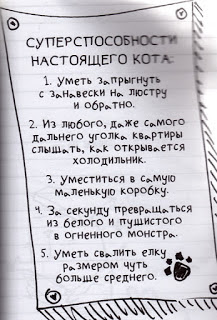 СУПЕРСПОСОБНОСТИ
НАСТОЯЩЕГО КОТА:
1. Уметь запрыгнуть
с занавески на люстру
и обратно.
2. Из любого, даже самого
дальнего уголка квартиры
слышать, как открывается
холодильник.
3. Уместиться в самую
маленькую коробку.
4. За секунду превращаться
из белого и пушистого
в огненного монстра.
5. Уметь свалить елку
размером чуть
больше среднего.